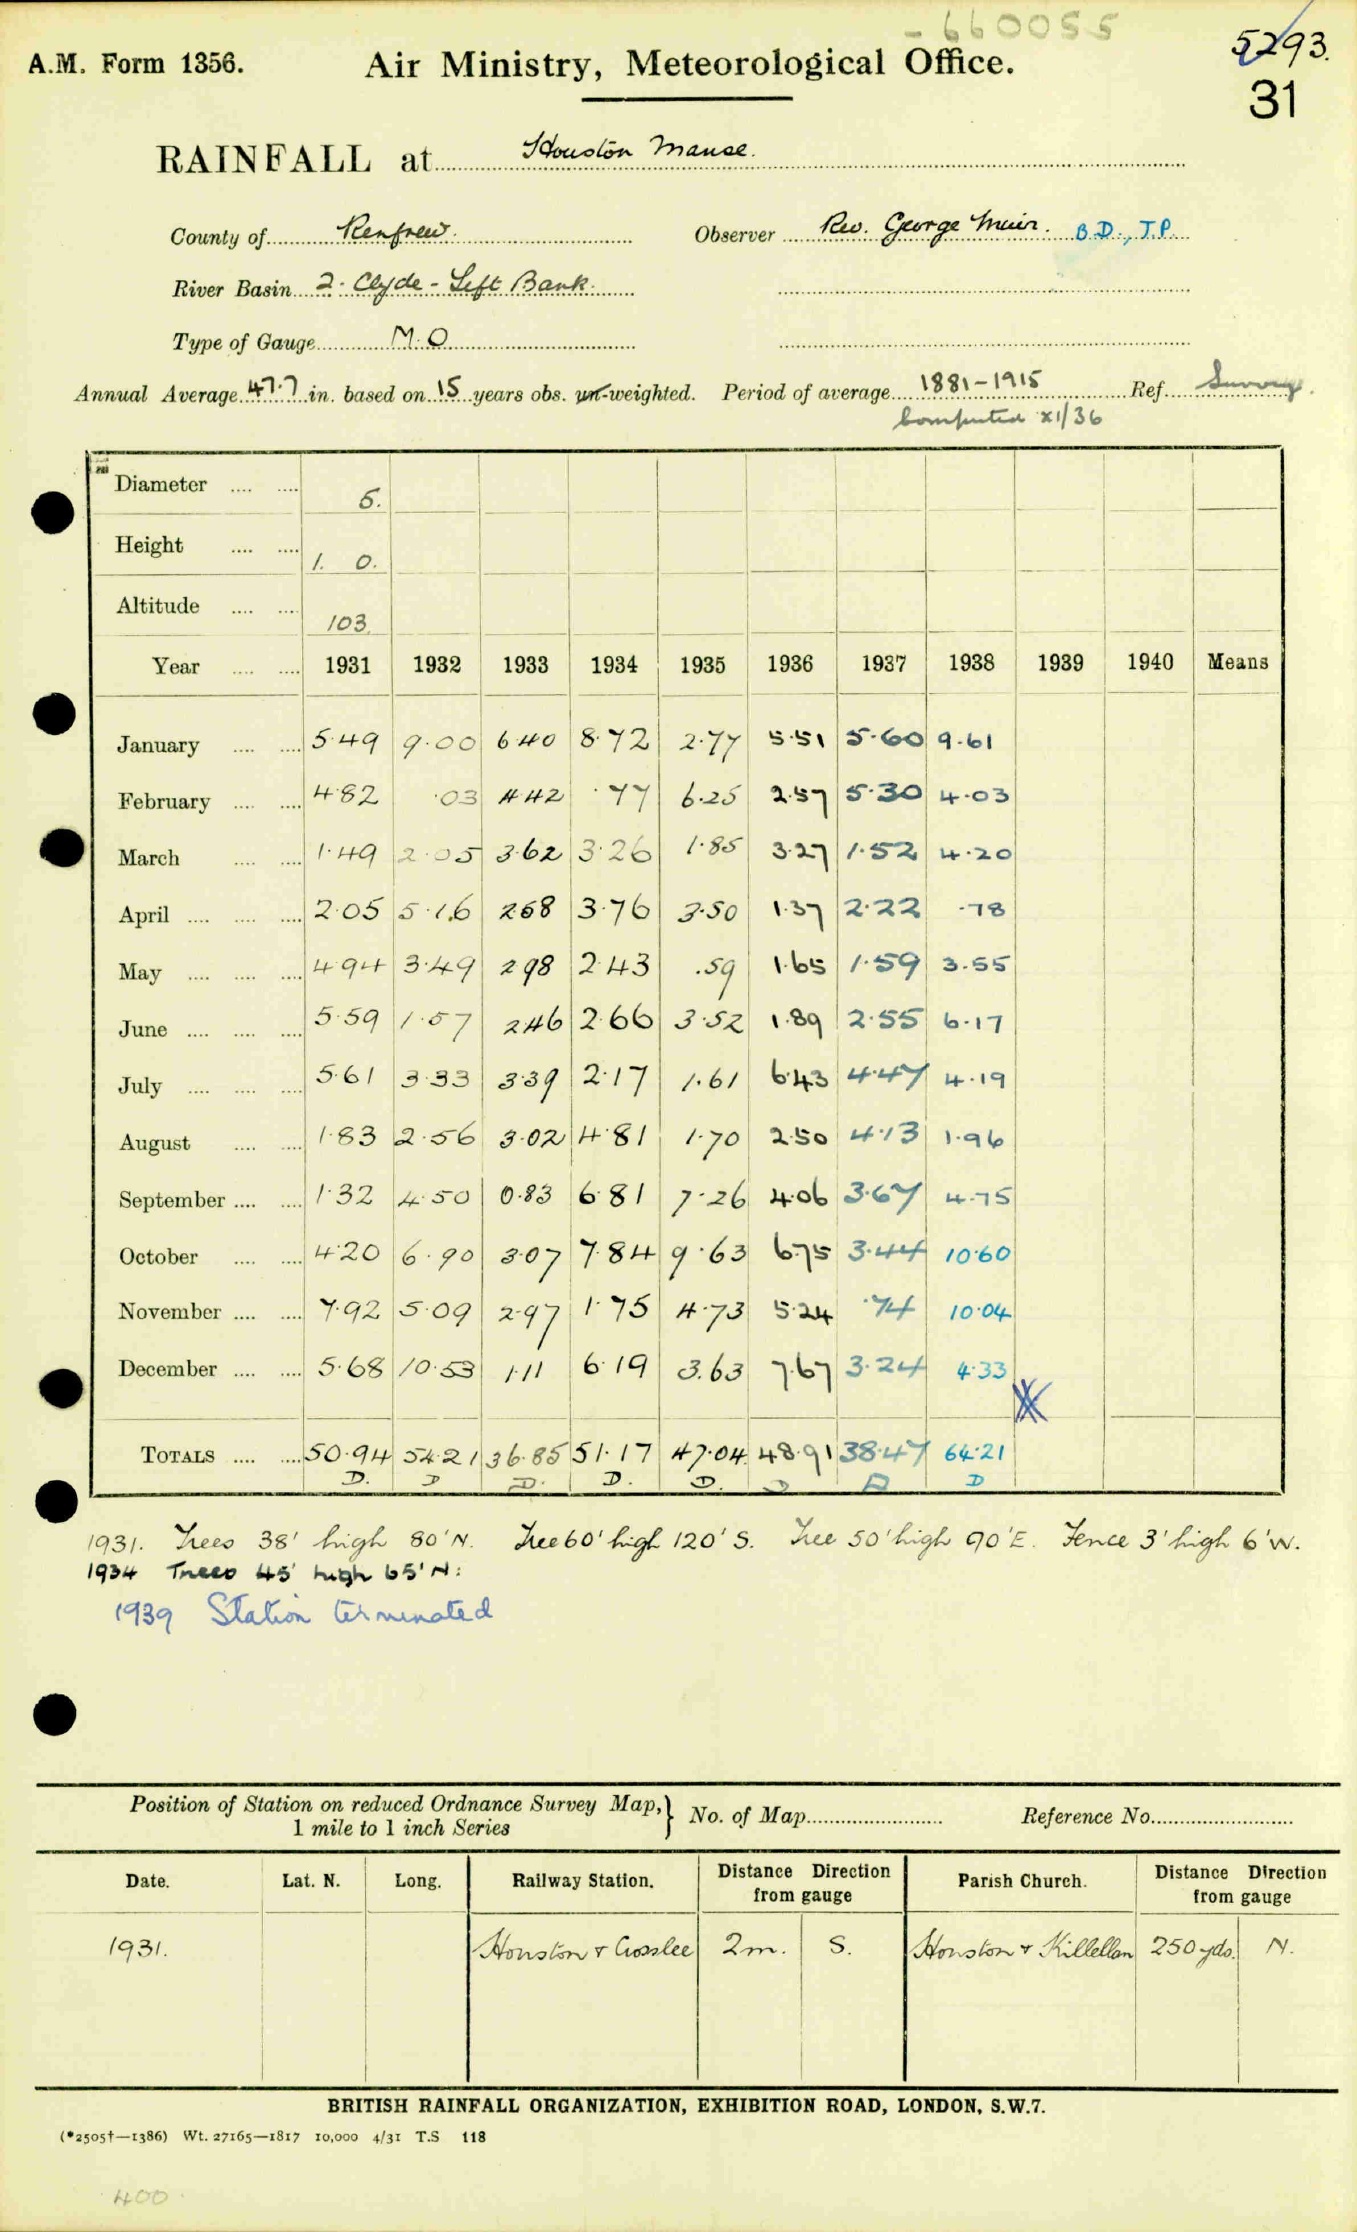 -660055
5293.
A.M. Form 1356. Air Ministry, Meteorological Office.
31
RAINFALL at Houston Manse.
County of Renfrew. Observer Rev. George Muir. B.D., J.P.
River Basin 2. Clyde - Left Bank.
Type of Gauge M.O.
Annual Average 47.7 in. based on 15 years obs. un-weighted. Period of average 1881-1915 Ref. Survey.
Computed XI/36
Diameter .... .... 5.
Height .... .... 1. 0.
Altitude .... .... 103.
Year .... .... 1931 1932 1933 1934 1935 1936 1937 1938 1939 1940 Means
January .... .... 5.49 9.00 6.40 8.72 2.77 5.51 5.60 9.61
February .... .... 4.82 .03 4.42 .77 6.25 2.57 5.30 4.03
March .... .... 1.49 2.05 3.62 3.26 1.85 3.27 1.52 4.20
April .... .... .... 2.05 5.16 2.68 3.76 3.50 1.37 2.22 .78
May .... .... .... 4.94 3.49 2.98 2.43 .59 1.65 1.59 3.55
June .... .... .... 5.59 1.57 2.46 2.66 3.52 1.89 2.55 6.17
July .... .... .... 5.61 3.33 3.39 2.17 1.61 6.43 4.47 4.19
August .... .... 1.83 2.56 3.02 4.81 1.70 2.50 4.13 1.96
September .... .... 1.32 4.50 0.83 6.81 7.26 4.06 3.67 4.75
October .... .... 4.20 6.90 3.07 7.84 9.63 6.75 3.44 10.60
November .... .... 7.92 5.09 2.97 1.75 4.73 5.24 .74 10.04
December .... .... 5.68 10.53 1.11 6.19 3.63 7.67 3.24 4.33
TOTALS .... .... 50.94 54.21 36.85 51.17 47.04 48.91 38.47 64.21
D. D D. D. D. D D D
1931. Trees 38' high 80' N. Tree 60' high 120' S. Tree 50' high 90' E. Fence 3' high 6' W.
1934 Trees 45' high 65' N:
1939 Station terminated
Position of Station on reduced Ordnance Survey Map,} No. of Map Reference No.
1 mile to 1 inch Series
Date. Lat. N. Long. Railway Station. Distance Direction from gauge Parish Church. Distance Direction from gauge
1931. Houston & Crosslee 2m. S. Houston & Killellan 250 yds. N.
BRITISH RAINFALL ORGANIZATION, EXHIBITION ROAD, LONDON, S.W.7.
(*2505†—1386) Wt. 27165—1817 10,000 4/31 T.S 118
400